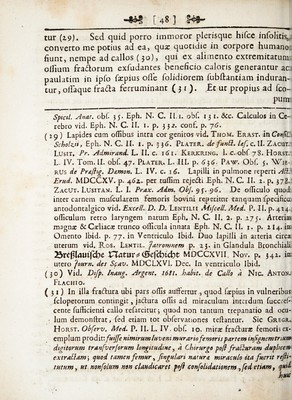 [ 48 ]
tur (29). Sed quid porro immoror plerisque hisce insolitis,
converto me potius ad ea, quæ quotidie in corpore humano
fiunt, nempe ad callos (30), qui ex alimento extremitatum
ossium fractorum exsudantes beneficio caloris generantur ac
paulatim in ipso sæpius osse solidiorem substantiam induran-
tur, ossaque fracta ferruminant (31). Et ut propius ad sco-
pum
Spicil. Anat. obs. 35. Eph. N. C. II. 1. obs. 131. &c. Calculos in Ce-
rebro vid. Eph. N. C. II. 1. p. 332. conf. p. 76.
(29) Lapides cum ossibus intra cor genitos vid. THOM. ERAST. in
Scholzii, Eph. N. C. II. 1. p. 336. PLATER. de funct. læs. c. II. ZACUT.
LUSIT. Pr. Admirand. L. II. c. 161. KERKRING. l. c. obs. 78. HORST.
L. IV. Tom. II. obs. 47. PLATER. L. III. p. 636. PAW. Obs. 5. WIE-
RUS de Præstig. Dæmon. L. IV. c. 16. Lapilli in pulmone reperti Act.
Erud. MDCCXV. p. 462. per tussim rejecti Eph. N. C. II. 2. p. 378.
ZACUT. LUSITAN. L. I. Prax. Adm. Obs. 95. 96. De ossiculo quod
inter carnem muscularem femoris bovini repertite tanquam specificum
antodontalgico vid. Excell. D. D. LENTILII Miscell. Med. P. II. p. 414.
ossiculum retro laryngem natum Eph. N. C. II. 2. p. 275. Arteriæ
magnæ & Cæliacæ trunco ossicula innata Eph. N. C. II. 1. p. 214. in
Omento Ibid. p. 77. in Ventriculo Ibid. Duo lapilli in arteria circa
uterum vid. ROS. LENTIL. Jatromnem p. 23. in Glandula Bronchiali
Breßlauische Natur-Geschicht MDCCXVII. Nov. p. 342. in
utero Journ. des Scav. MDCLXVI. Dec. In ventriculo Ibid.
(30) Vid. Disp. Inaug. Argent. 1681. habit. de Callo à NIC. ANTON.
FLACHIO.
(31) In illa fractura ubi pars ossis auffertur, quod sæpius in vulneribus
sclopetorum contingit, jactura ossis ad miraculum interdum succres-
cente sufficienti callo resarcitur; quod non tantum trepanatio ad ocu-
lum demonstrat, sed etiam tot observationes testantur. Sic GREGOR.
HORST. Observ. Med. P. II. L. IV. obs. 10. miræ fracturæ femoris ex-
emplum prodit: fuisse nimirum juveni murario femoris partem insignem trium
digitorum transversorum longitudine, à Chirurgo post fracturam duplicem
extractam; quod tamen femur, singulari natura miraculo ita fuerit resti-
tutum, ut nonsolum non claudicaret post consolidationem, sed etiam, quod